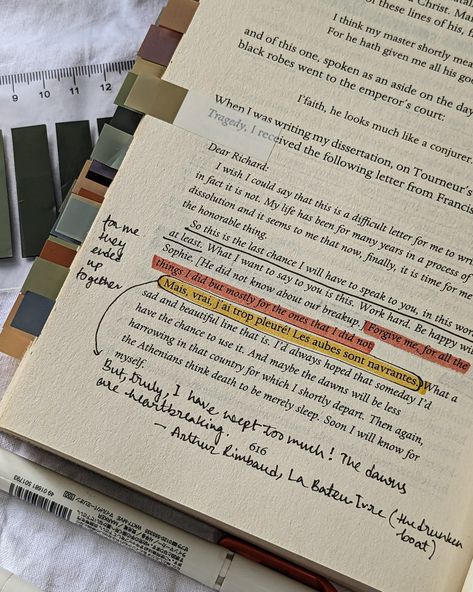 of these lines of his, f
I think my master shortly mea
For he hath given me all his go
and of this one, spoken as an aside on the day
black robes went to the emperor's court:
I'faith, he looks much like a conjure
When I was writing my dissertation, on Tourneur's
Tragedy, I received the following letter from Francis
Dear Richard,
I wish I could say that this is a difficult letter for me to wri
in fact it is not. My life has been for many years in a process of
dissolution and it seems to me that now, finally, it is time for me
the honorable thing.
So this is the last chance I will have to speak to you, in this wor
at least. What I want to say to you is this. Work hard. Be happy wi
Sophie. [He did not know about our breakup.] Forgive me, for all the
things I did but mostly for the ones that I did not.
Mais, vrai, j'ai trop pleuré! Les aubes sont navrantes. What a
sad and beautiful line that is. I'd always hoped that someday I'd
have the chance to use it. And maybe the dawns will be less
harrowing in that country for which I shortly depart. Then again,
the Athenians think death to be merely sleep. Soon I will know for
myself.
616
for me
they
ended
up
together
But, truly, I have wept too much! The dawns
are heartbreaking.
— Arthur Rimbaud, La Bateu Ivre (the drunken
boat)
9 10 11 12